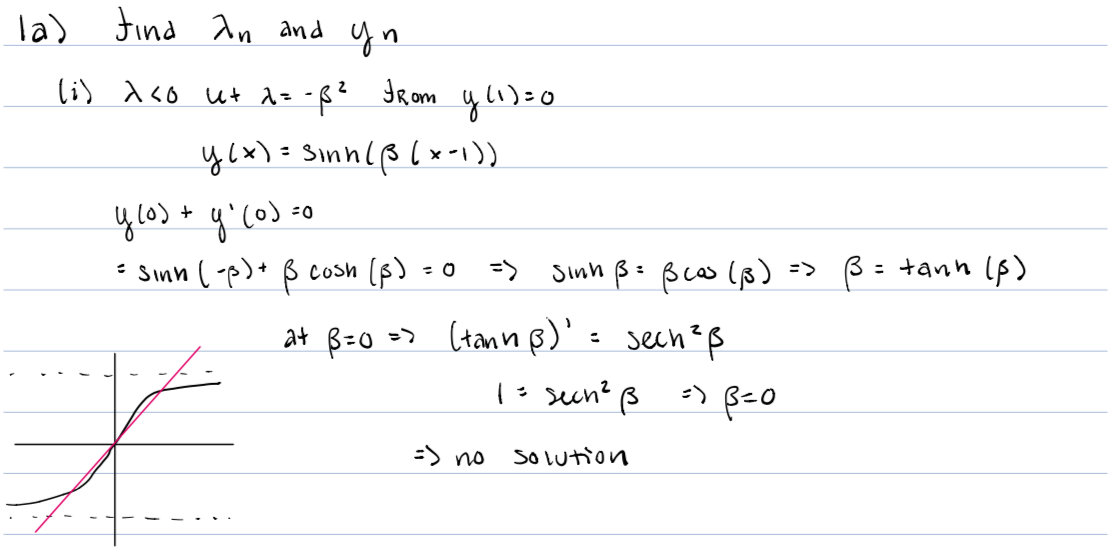 1a) find λn and yn
(i) λ<0 let λ = -β² from y(1)=0
y(x) = sinh(β(x-1))
y(0) + y'(0) =0
= sinh(-β)+ β cosh(β) = 0 => sinh β = β cos(β) => β = tanh(β)
at β=0 => (tanh β)' = sech²β
1 = sech² β => β=0
=> no solution